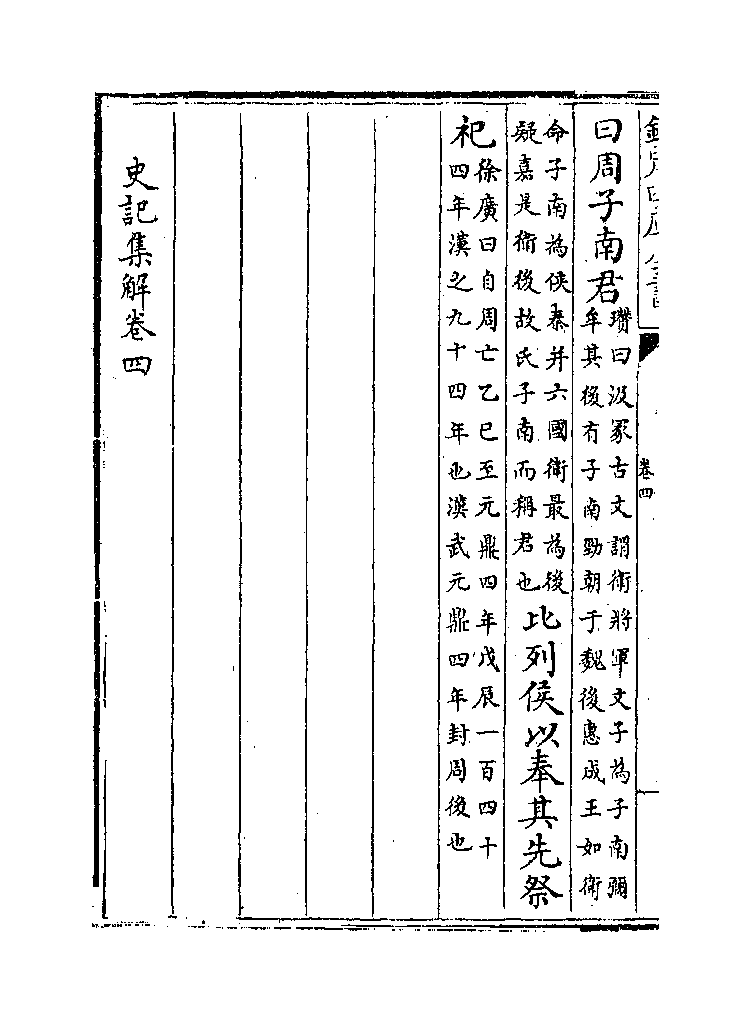 欽定四庫全書
卷四
曰周子南君瓚曰汲冢古文謂衛將軍文子為子南彌
牟其後有子南勁朝于魏後惠成王如衛
命子南為侯秦并六國衛最為後
疑嘉是衛後故氏子南而稱君也比列侯以奉其先祭
祀徐廣曰自周亡乙巳至元鼎四年戊辰一百四十
四年漢之九十四年也漢武元鼎四年封周後也
史記集解卷四